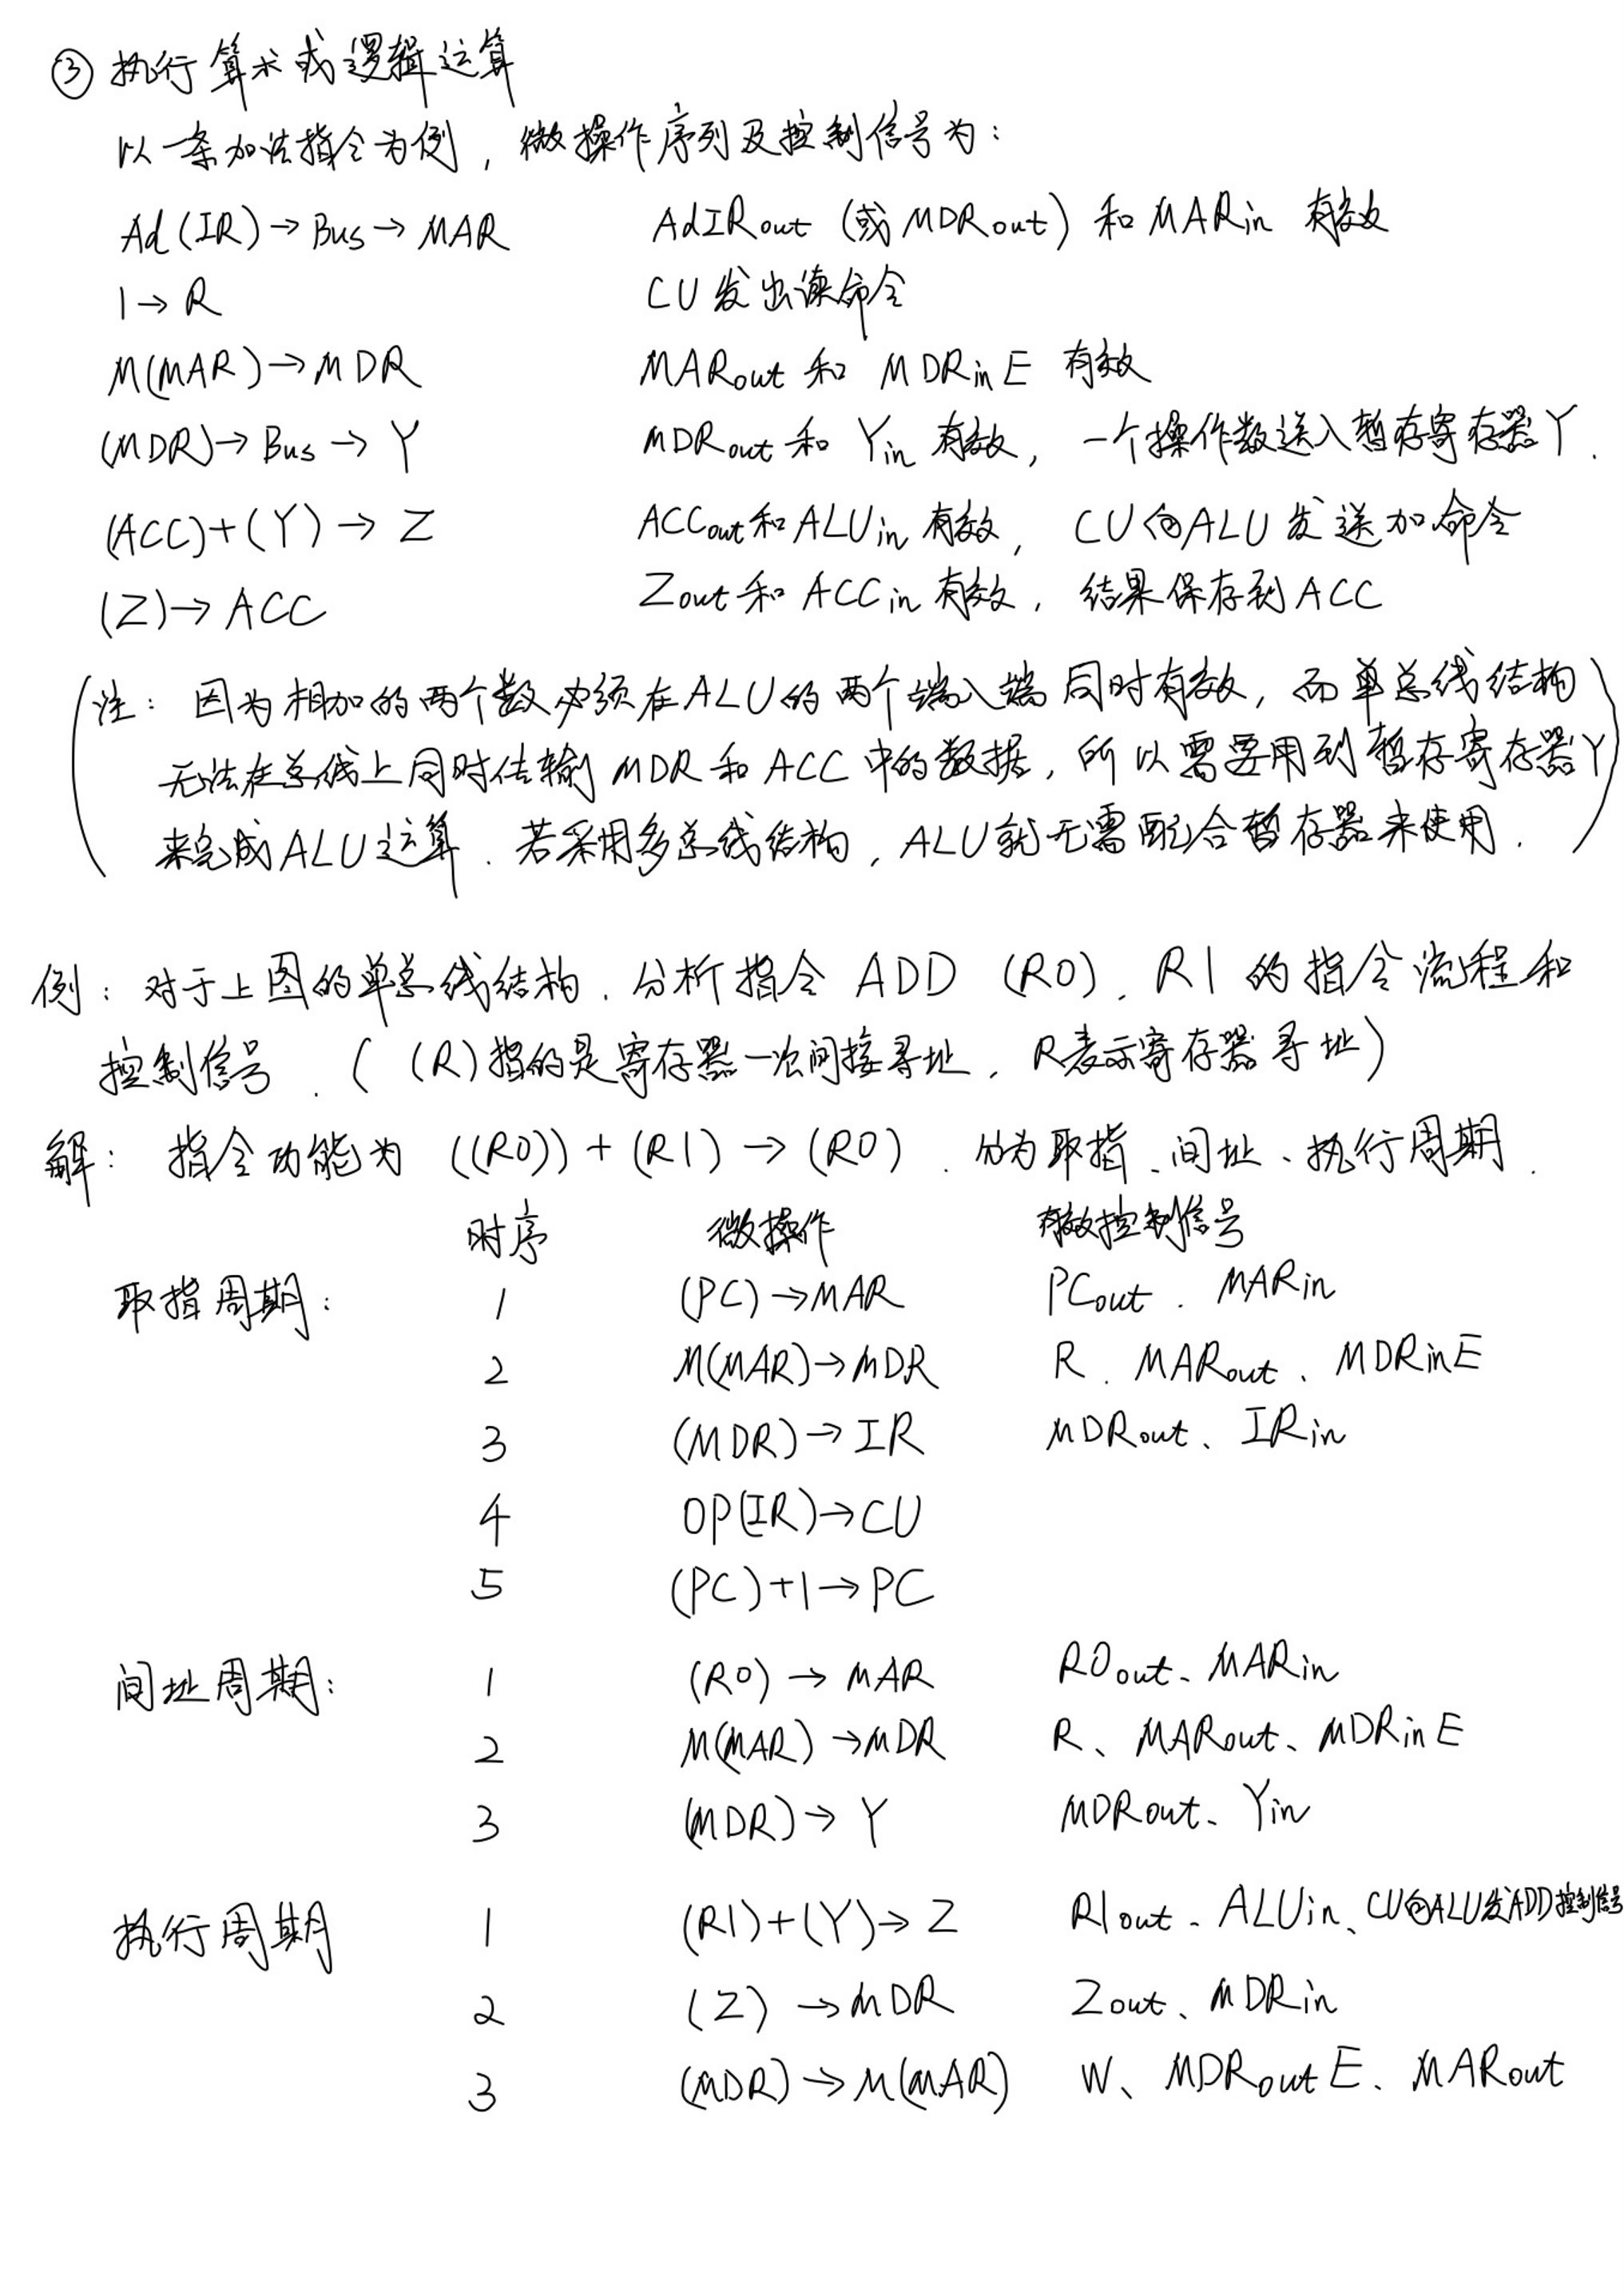 ③ 执行算术或逻辑运算
以一条加法指令为例，微操作序列及控制信号为：
Ad(IR)→Bus→MAR AdIRout（或MDRout）和MARin 有效
1→R CU发出读命令
M(MAR)→MDR MARout和 MDRinE 有效
(MDR)→Bus→Y MDRout和 Yin 有效，一个操作数送入暂存寄存器Y.
(ACC)+(Y)→Z ACCout和ALUin有效，CU向ALU发送加命令
(Z)→ACC Zout和ACCin有效，结果保存到ACC
（注：因为相加的两个数必须在ALU的两个端入端同时有效，而单总线结构
无法在总线上同时传输MDR和ACC中的数据，所以需要用到暂存寄存器Y
来完成ALU运算.若采用多总线结构，ALU就无需配合暂存器来使用.）
例：对于上图的单总线结构.分析指令 ADD (R0)、R1的指令流程和
控制信号.（(R)指的是寄存器一次间接寻址，R表示寄存器寻址）
解：指令功能为 ((R0))+(R1)→(R0).分为取指、间址、执行周期.
时序 微操作 有效控制信号
取指周期： 1 (PC)→MAR PCout、MARin
2 M(MAR)→MDR R、MARout、MDRinE
3 (MDR)→IR MDRout、IRin
4 OP(IR)→CU
5 (PC)+1→PC
间址周期： 1 (R0)→MAR R0out、MARin
2 M(MAR)→MDR R、MARout、MDRinE
3 (MDR)→Y MDRout、Yin
执行周期 1 (R1)+(Y)→Z R1out、ALUin、CU向ALU发ADD控制信号
2 (Z)→MDR Zout、MDRin
3 (MDR)→M(MAR) W、MDRoutE、MARout